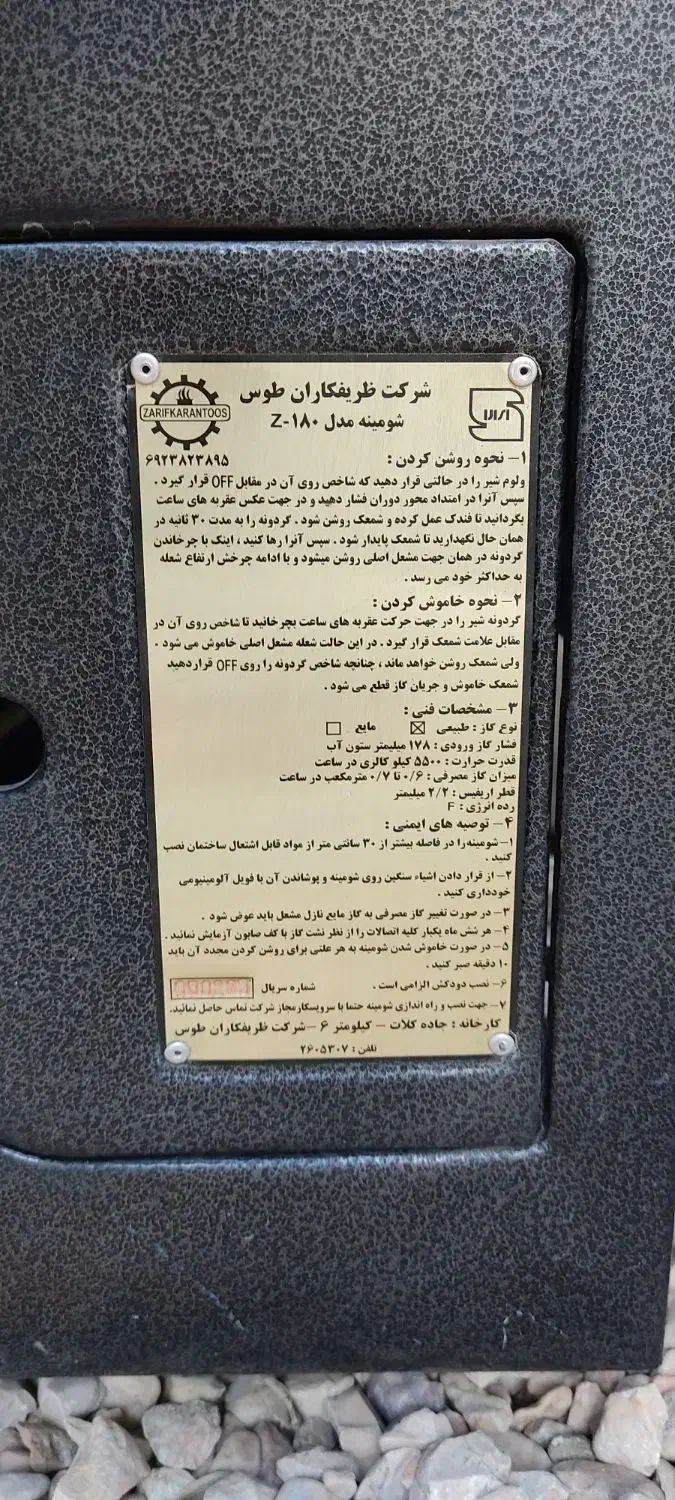 شرکت ظریفکاران طوس
ZARIFKARANTOOS
شومینه مدل Z-۱۸۰
۶۹۲۳۸۲۳۸۹۵
۱- نحوه روشن کردن :
ولوم شیر را در حالتی قرار دهید که شاخص روی آن در مقابل OFF قرار گیرد .
سپس آنرا در امتداد محور دوران فشار دهید و در جهت عکس عقربه های ساعت
بگردانید تا فندک عمل کرده و شمعک روشن شود . گردونه را به مدت ۳۰ ثانیه در
همان حال نگهدارید تا شمعک پایدار شود . سپس آنرا رها کنید ، اینک با چرخاندن
گردونه در همان جهت مشعل اصلی روشن میشود و با ادامه چرخش ارتفاع شعله
به حداکثر خود می رسد .
۲- نحوه خاموش کردن :
گردونه شیر را در جهت حرکت عقربه های ساعت بچرخانید تا شاخص روی آن در
مقابل علامت شمعک قرار گیرد . در این حالت شعله مشعل اصلی خاموش می شود .
ولی شمعک روشن خواهد ماند ، چنانچه شاخص گردونه را روی OFF قراردهید
شمعک خاموش و جریان گاز قطع می شود .
۳- مشخصات فنی :
نوع گاز : طبیعی ☒ مایع ☐
فشار گاز ورودی : ۱۷۸ میلیمتر ستون آب
قدرت حرارت : ۵۵۰۰ کیلو کالری در ساعت
میزان گاز مصرفی : ۰/۶ تا ۰/۷ مترمکعب در ساعت
قطر اریفیس : ۲/۲ میلیمتر
رده انرژی : F
۴- توصیه های ایمنی :
۱- شومینه را در فاصله بیشتر از ۳۰ سانتی متر از مواد قابل اشتعال ساختمان نصب
کنید .
۲- از قرار دادن اشیاء سنگین روی شومینه و پوشاندن آن با فویل آلومینیومی
خودداری کنید .
۳- در صورت تغییر گاز مصرفی به گاز مایع نازل مشعل باید عوض شود .
۴- هر شش ماه یکبار کلیه اتصالات را از نظر نشت گاز با کف صابون آزمایش نمائید .
۵- در صورت خاموش شدن شومینه به هر علتی برای روشن کردن مجدد آن باید
۱۰ دقیقه صبر کنید .
۶- نصب دودکش الزامی است .
شماره سریال
۷- جهت نصب و راه اندازی شومینه حتما با سرویسکار مجاز شرکت تماس حاصل نمائید.
کارخانه : جاده کلات - کیلومتر ۶ - شرکت ظریفکاران طوس
تلفن : ۲۶۰۵۳۰۷